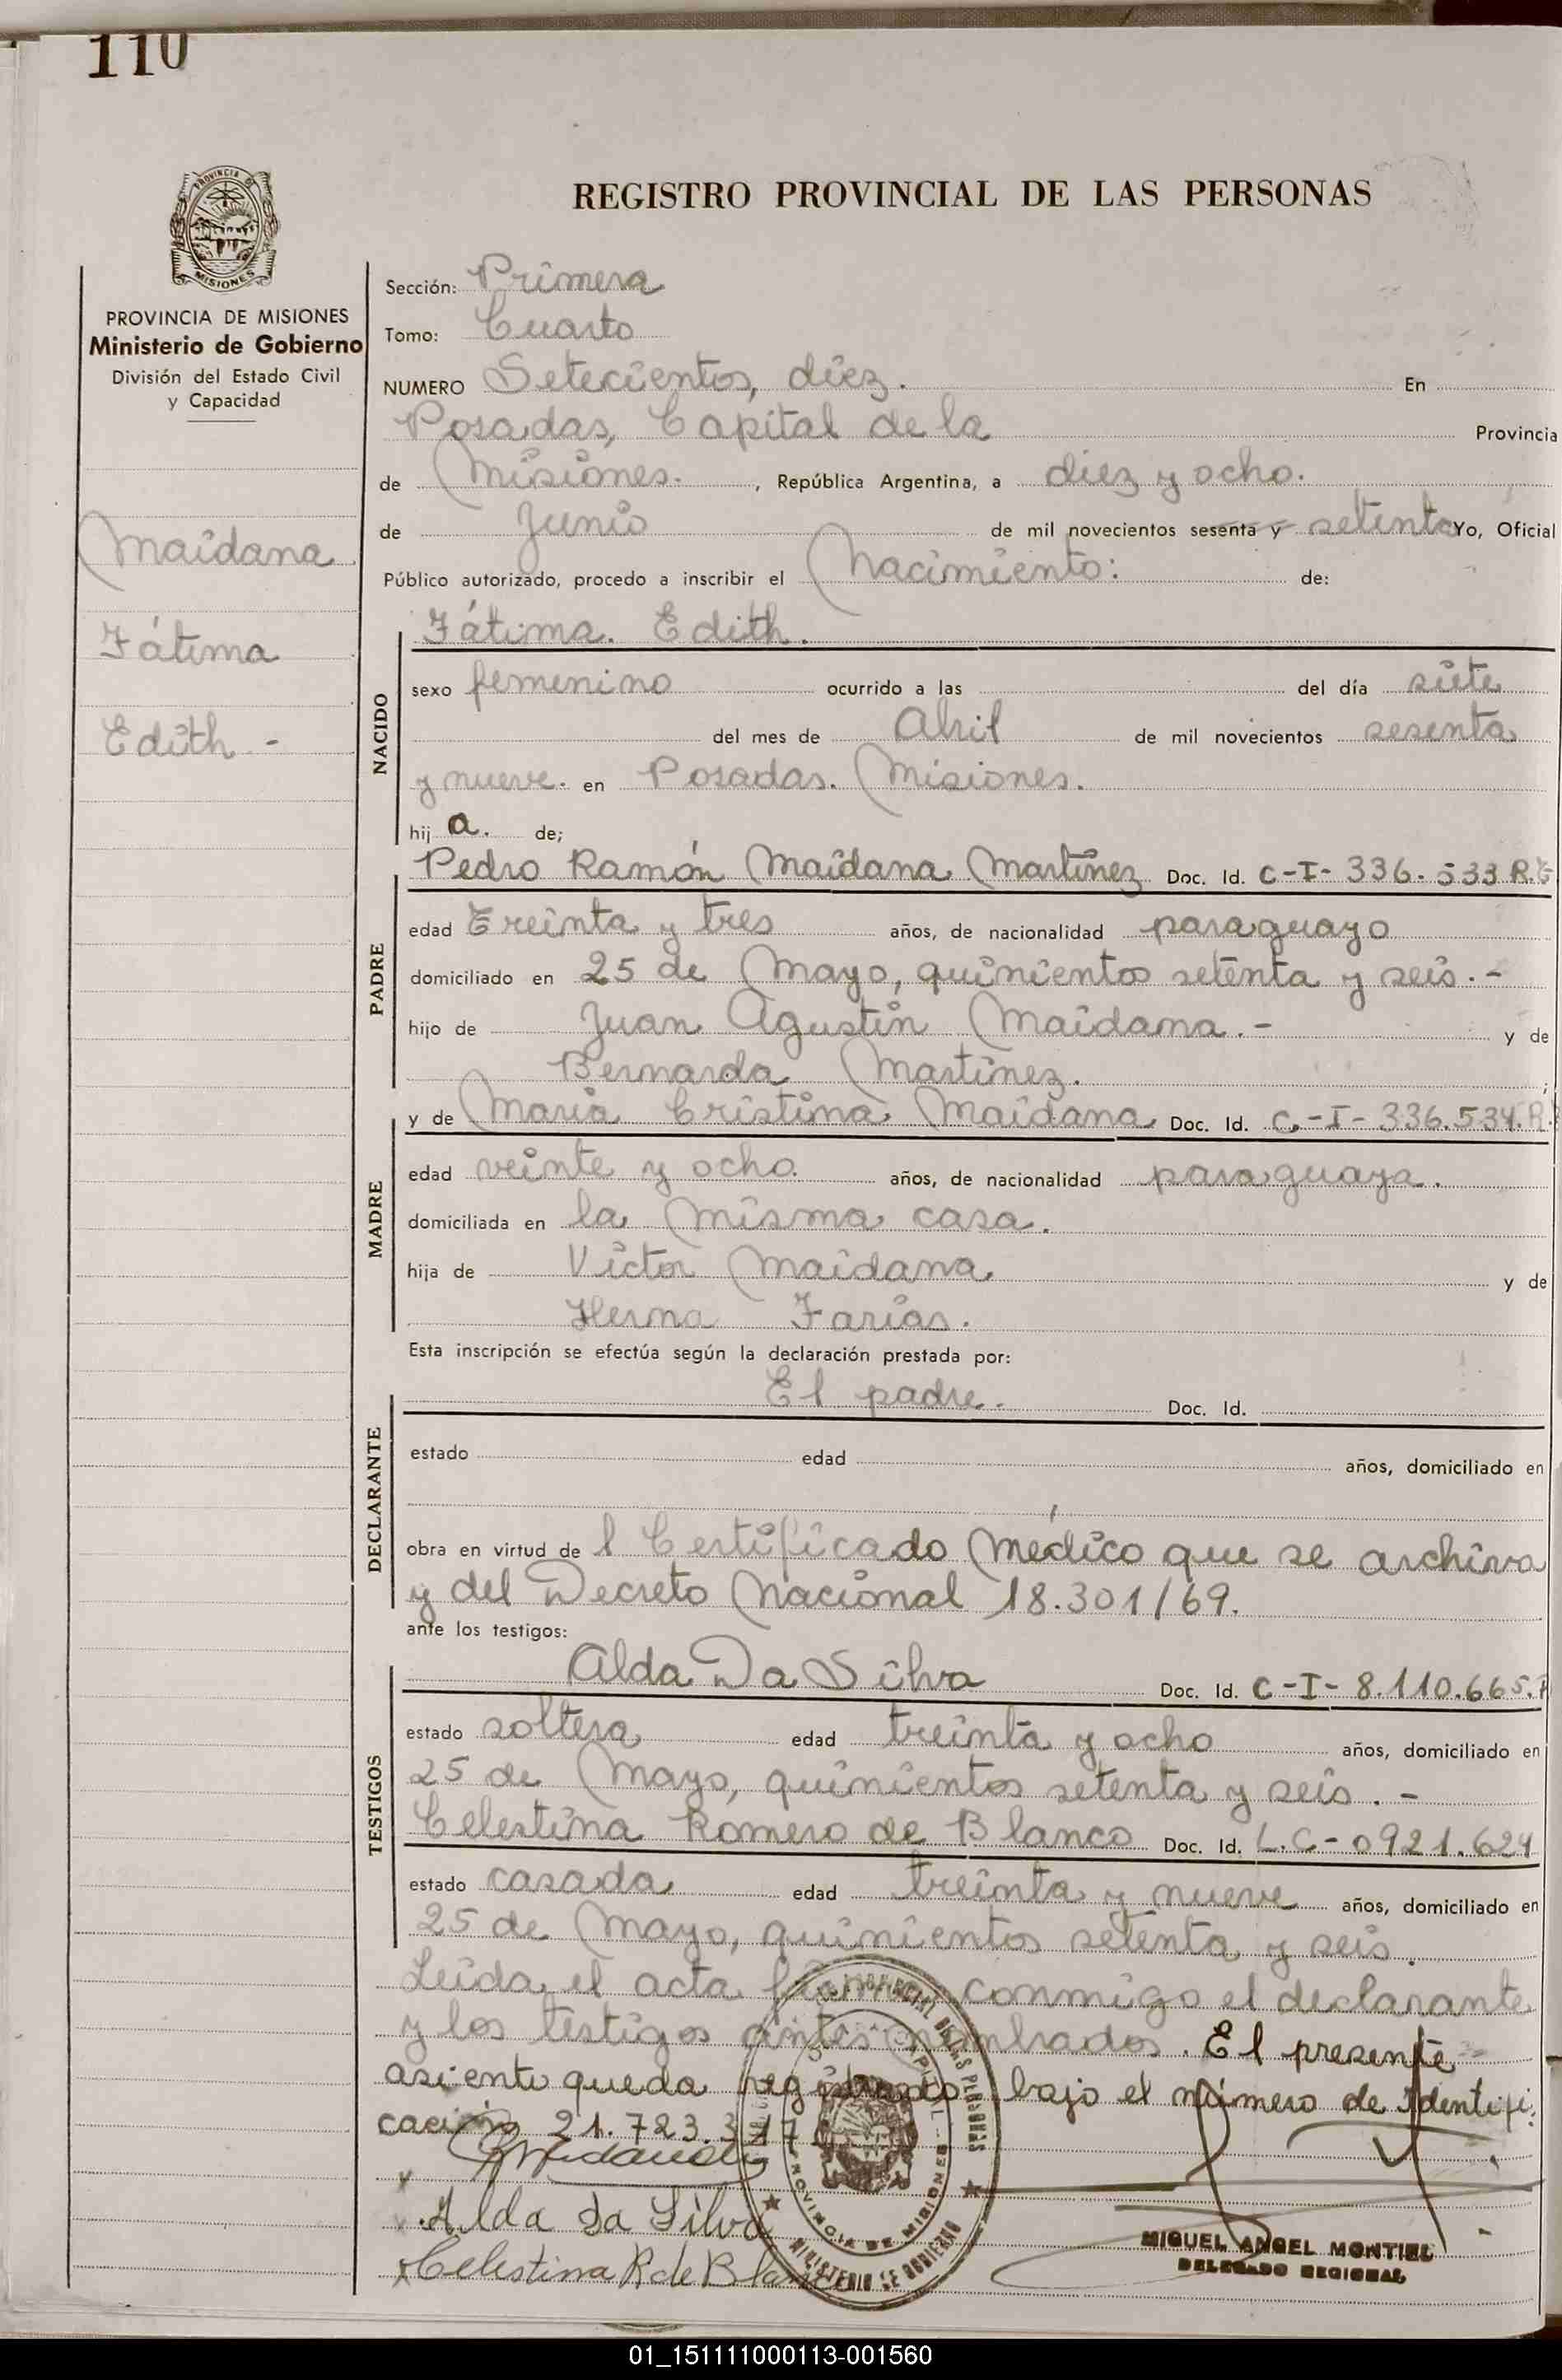 110
REGISTRO PROVINCIAL DE LAS PERSONAS
PROVINCIA DE MISIONES
Ministerio de Gobierno
División del Estado Civil
y Capacidad
Maidana
Fátima
Edith -
Sección: Primera
Tomo: Cuarto
NUMERO Setecientos, diez. En
Posadas, Capital de la Provincia
de Misiones. , República Argentina, a diez y ocho.
de Junio de mil novecientos sesenta y setenta Yo, Oficial
Público autorizado, procedo a inscribir el Nacimiento: de:
NACIDO
Fátima. Edith.
sexo femenino ocurrido a las del día siete
del mes de Abril de mil novecientos sesenta
y nueve. en Posadas. Misiones.
hij a. de;
PADRE
Pedro Ramón Maidana Martínez Doc. Id. C-I- 336.533 R.
edad Treinta y tres años, de nacionalidad paraguayo
domiciliado en 25 de Mayo, quinientos setenta y seis. -
hijo de Juan Agustin Maidana. - y de
Bernarda Martinez. ;
MADRE
y de Maria Cristina Maidana Doc. Id. C.-I- 336.534.R.
edad veinte y ocho años, de nacionalidad paraguaya.
domiciliada en la misma casa.
hija de Victor Maidana y de
Herma Farias.
Esta inscripción se efectúa según la declaración prestada por:
DECLARANTE
El padre. Doc. Id.
estado edad años, domiciliado en
obra en virtud de l Certificado Médico que se archiva
y del Decreto Nacional 18.301/69.
ante los testigos:
TESTIGOS
Alda Da Silva Doc. Id. C-I- 8.110.665.
estado soltera edad treinta y ocho años, domiciliado en
25 de Mayo, quinientos setenta y seis. -
Celestina Romero de Blanco Doc. Id. L.C- 0921.624
estado casada edad treinta y nueve años, domiciliado en
25 de Mayo, quinientos setenta y seis.
Leida el acta firman conmigo el declarante
y los testigos antes nombrados. El presente
asiento queda registrado bajo el número de Identifi.
cación 21.723.317
Alda da Silva
Celestina R de Blanco
PROVINCIA DE MISIONES
MINISTERIO DE GOBIERNO
MIGUEL ANGEL MONTIEL
DELEGADO REGIONAL
01_151111000113-001560